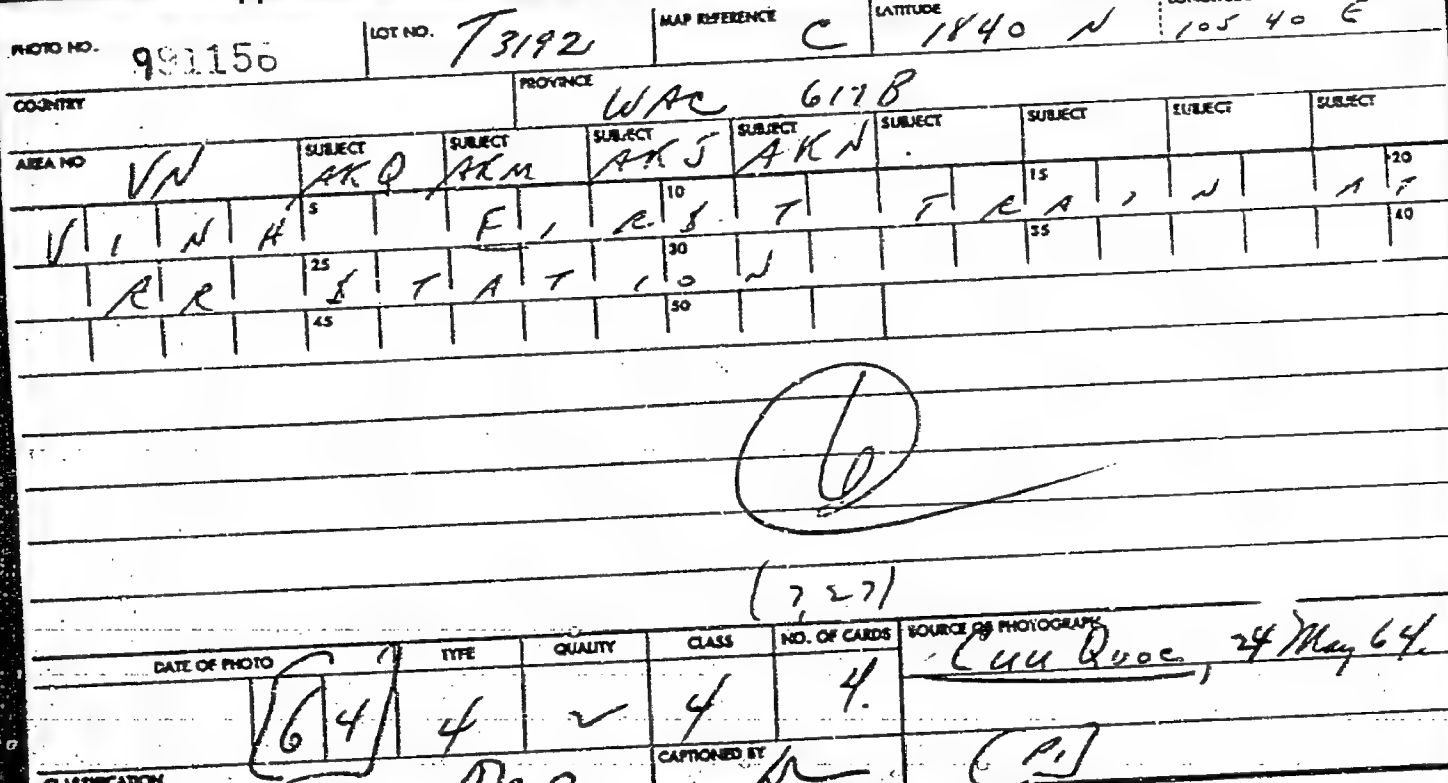 PHOTO NO. 991156 LOT NO. T3192 MAP REFERENCE C LATITUDE 1840 N 105 40 E
COUNTRY PROVINCE WAC 617B
AREA NO VN SUBJECT AKQ SUBJECT AKM SUBJECT AKJ SUBJECT AKN SUBJECT SUBJECT SUBJECT SUBJECT
VINH 5 FIRS 10 T TRA 15 IN AT 20
RR 25 STATIO 30 N 35 40
45 50
6
DATE OF PHOTO TYPE QUALITY CLASS NO. OF CARDS SOURCE OF PHOTOGRAPH Cuu Quoc, 24 May 64.
64 4 4 4.
CLASSIFICATION CAPTIONED BY (P.1)